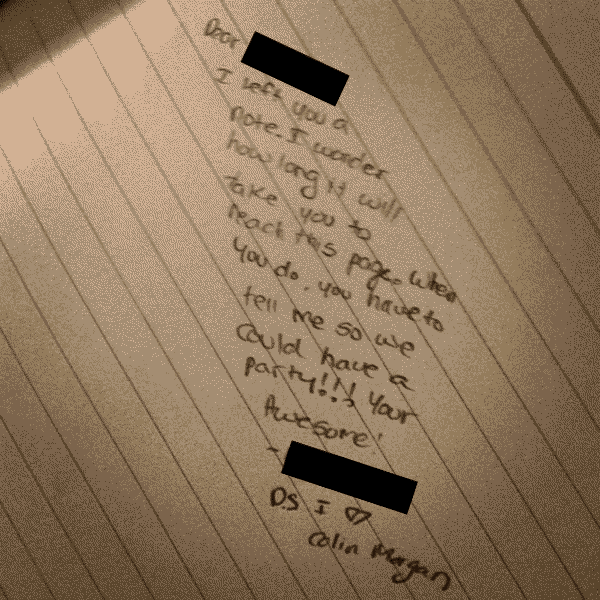 Dear
I left you a
note. I wonder
how long it will
take you to
reach this page. when
you do, you have to
tell me so we
could have a
party!!! Your
Awesome!
-
D.S I ♡
Colin Morgan